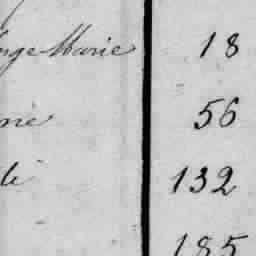 nge-Marie 18
rie 56
le 132
185